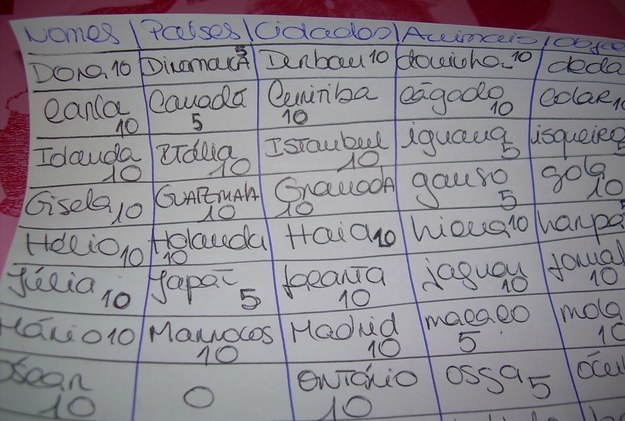 Nomes | Países | Cidades | Animais | Obje
Dora 10 Dinamarca 5 Durban 10 doninha 10 deda
Carla 10 Canadá 5 Curitiba 10 cágado 10 colar 10
Iolanda 10 Itália 10 Istambul 10 iguana 5 isqueiro 5
Gisela 10 Guatemala 10 Granada 10 ganso 5 gola 10
Hélio 10 Holanda 10 Haia 10 hiena 10 harpa 5
Júlia 10 Japão 5 10 jaguar 10 jornal 10
Mário 10 Marrocos 10 Madrid 10 macaco 5 mola 10
Óscar 10 0 Ontário 10 ossa 5 ócul